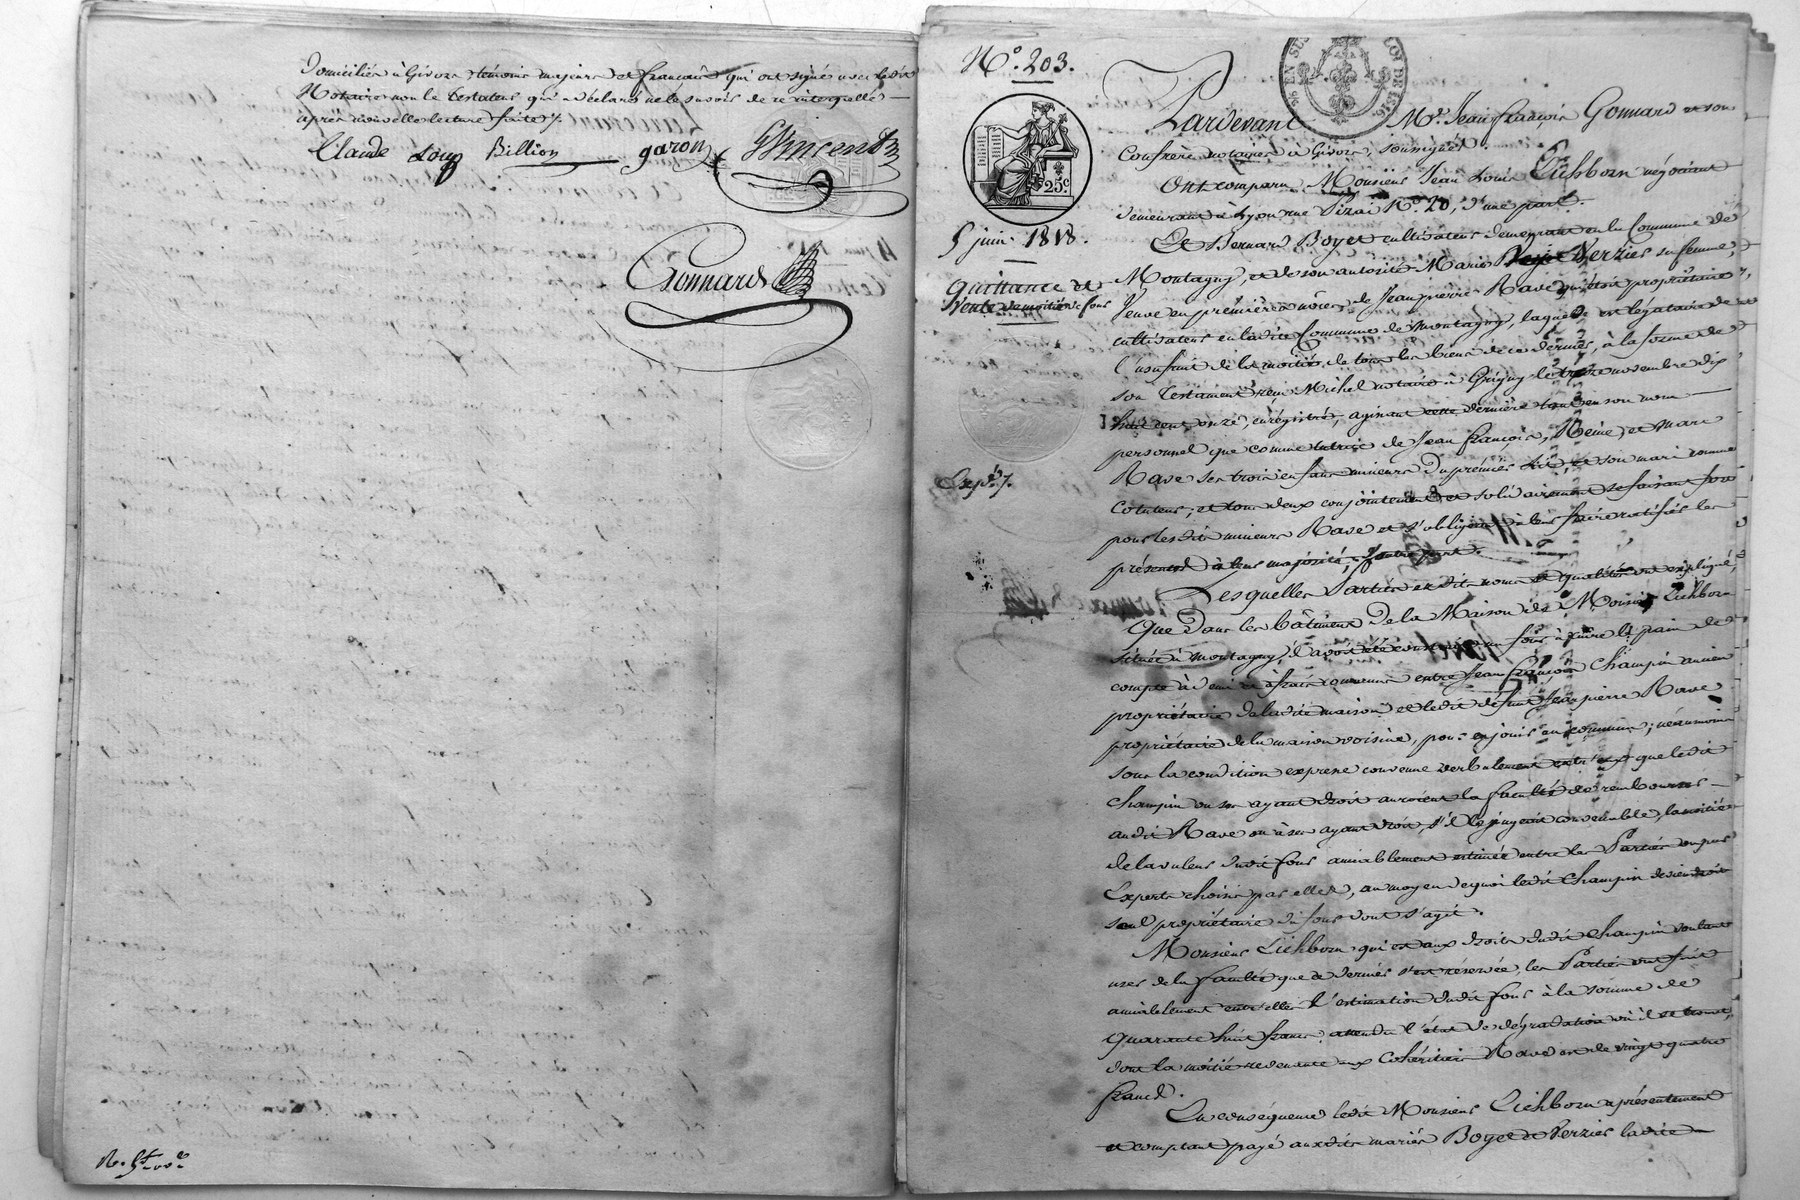 Domiciliés à Givors témoins majeurs et français qui ont signé avec ledit
Notaire non le testateur qui a déclaré ne le savoir de ce interpellé
après nouvelle lecture faite
Claude Loup Billion garon Vincent
Gonnard
R. 5f. vo. c.
N.° 203.
25c
5 juin 1818.
Quittance et
Vente de moitié de four
Exp.é
EN SUS LOI DE 1816
Pardevant M.e Jean françois Gonnard et son
Confrère notaires à Givors, soussignés.
Ont comparu Monsieur Jean Louis Eichborn négociant
demeurant à Lyon rue Pizai N.° 20, d'une part.
Et Bernard Boyet cultivateur demeurant en la Commune de
Montagny, et de son autorité Marie Verzier sa femme,
Veuve en premières nôces de Jean pierre Rave qui étoit propriétaire
cultivateur en ladite Commune de Montagny, laquelle est légataire de
l'usufruit de la moitié de tous les biens de ce dernier, à la forme de
son Testament reçu Michel notaire à Grigny le treize novembre dix
huit cent onze, enrégistré, agissant cette dernière tant en son nom
personnel que comme tutrice de Jean françois, Reine, et Marc
Rave ses trois enfans mineurs du premier lit, et son mari comme
Cotuteur, et tous deux conjointement et solidairement se faisant fort
pour lesdits mineurs Rave et s'obligeant à leur faire ratifier les
présentes à leur majorité, d'autre part.
Lesquelles Parties esdits noms et qualités ont expliqué,
Que dans les bâtimens de la Maison de Monsieur Eichborn
située à Montagny, il avoit été construit un four à cuire le pain de
compte à demi et à frais communs entre Jean françois Champin ancien
propriétaire de ladite maison et ledit défunt Jean pierre Rave
propriétaire de la maison voisine, pour en jouir en commun; néanmoins
sous la condition expresse convenue verbalement entr'eux que ledit
Champin ou son ayant droit auroient la faculté de rembourser
audit Rave ou à son ayant droit, s'il le jugeoit convenable, la moitié
de la valeur dudit four amiablement estimée entre les Parties ou par
Experts choisis par elles, au moyen de quoi ledit Champin deviendroit
seul propriétaire du four dont s'agit.
Monsieur Eichborn qui est aux droits dudit Champin voulant
user de la faculté que ce dernier s'est réservée, les Parties ont fait
amiablement entr'elles l'estimation dudit four à la somme de
quarante huit francs attendu l'état de dégradation où il se trouve,
dont la moitié revenante aux Cohéritiers Rave est de vingt quatre
francs.
En conséquence ledit Monsieur Eichborn a présentement
et comptant payé auxdits mariés Boyet et Verzier ladite